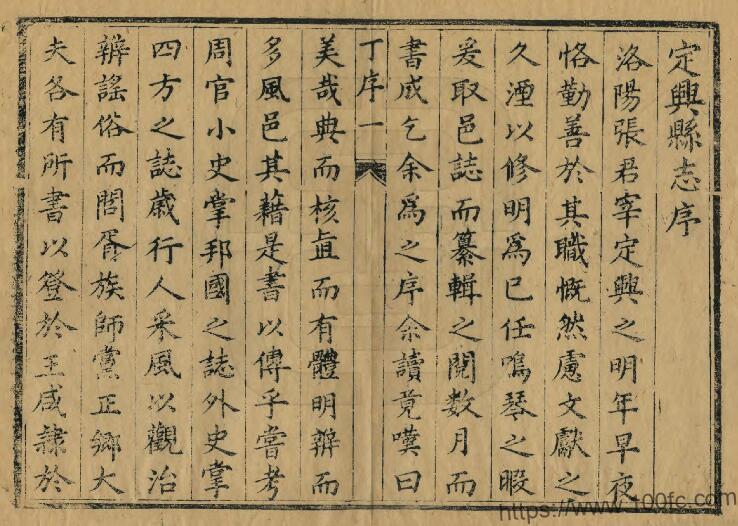 定興縣志序
洛陽張君宰定興之明年早夜
恪勤善於其職慨然慮文獻之
久湮以修明爲已任鳴琴之暇
爰取邑誌而纂輯之閱数月而
書成乞余爲之序余讀竟嘆曰
丁序一
美哉典而核直而有體明辨而
多風邑其藉是書以傳乎嘗考
周官小史掌邦國之誌外史掌
四方之誌歲行人采風以觀治
辨謡俗而閭胥族師黨正鄉大
夫各有所書以登於王咸隷於
https://www.100fc.com